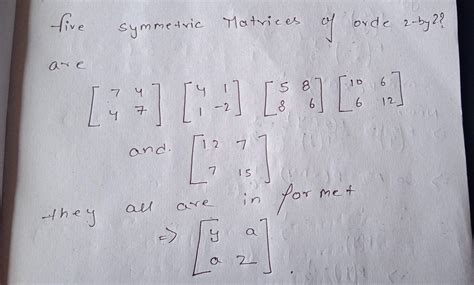 five symmetric Matrices of orde 2-by2?
are
[7 4] [4 1] [5 8] [10 6]
[4 7] [1 -2] [8 6] [6 12]
and [12 7]
[7 15]
they all are in formet
⇒ [y a]
[a z].